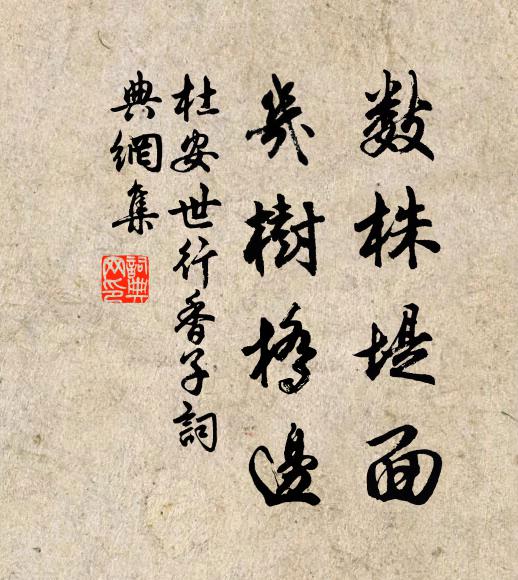 數株堤面
幾樹橋邊
杜安世行香子詞
典網集
詞典網印